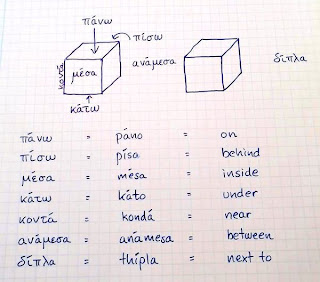 πάνω
πίσω
κοντά μέσα ανάμεσα δίπλα
κάτω
πάνω = páno = on
πίσω = písa = behind
μέσα = mésa = inside
κάτω = káto = under
κοντά = kondá = near
ανάμεσα = anámesa = between
δίπλα = thípla = next to